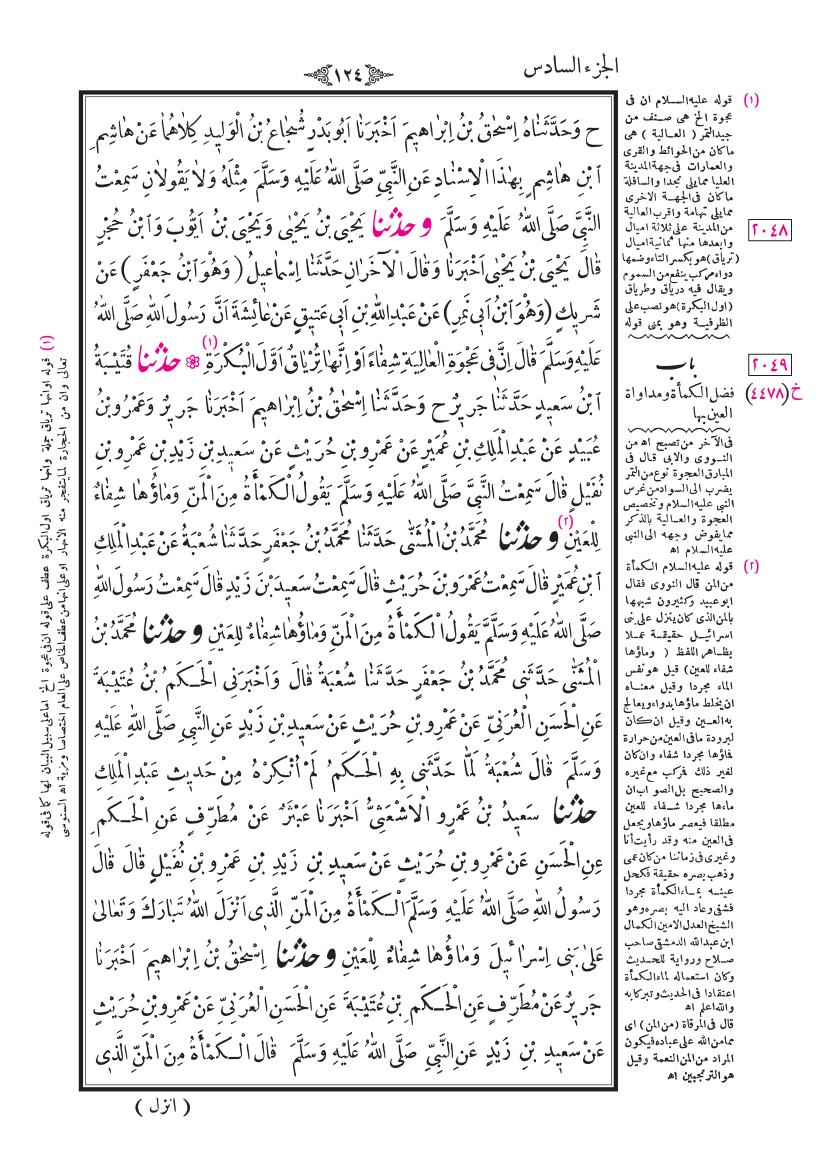 الجزء السادس
١٢٤
ح وَحَدَّثَنَاهُ اِسْحٰقُ بْنُ اِبْرَاهِيمَ اَخْبَرَنَا اَبُو بَدْرٍ شُجَاعُ بْنُ الْوَلِيدِ كِلَاهُمَا عَنْ هَاشِمِ
ابْنِ هَاشِمٍ بِهٰذَا الْاِسْنَادِ عَنِ النَّبِيِّ صَلَّى اللهُ عَلَيْهِ وَسَلَّمَ مِثْلَهُ وَلَا يَقُولَانِ سَمِعْتُ
النَّبِيَّ صَلَّى اللهُ عَلَيْهِ وَسَلَّمَ وحَدَّثَنَا يَحْيَى بْنُ يَحْيٰى وَيَحْيَى بْنُ اَيُّوبَ وَابْنُ حُجْرٍ
قَالَ يَحْيَى بْنُ يَحْيٰى اَخْبَرَنَا وَقَالَ الْآخَرَانِ حَدَّثَنَا اِسْمَاعِيلُ (وَهُوَ ابْنُ جَعْفَرٍ) عَنْ
شَرِيكٍ (وَهُوَ ابْنُ اَبِي نَمِرٍ) عَنْ عَبْدِاللهِ بْنِ اَبِي عَتِيقٍ عَنْ عَائِشَةَ اَنَّ رَسُولَ اللهِ صَلَّى اللهُ
عَلَيْهِ وَسَلَّمَ قَالَ اِنَّ فِي عَجْوَةِ الْعَالِيَةِ شِفَاءً اَوْ اِنَّهَا تِرْيَاقٌ اَوَّلَ الْبُكْرَةِ (١) حَدَّثَنَا قُتَيْبَةُ
ابْنُ سَعِيدٍ حَدَّثَنَا جَرِيرٌ ح وَحَدَّثَنَا اِسْحٰقُ بْنُ اِبْرَاهِيمَ اَخْبَرَنَا جَرِيرٌ وَعَمْرُو بْنُ
عُبَيْدٍ عَنْ عَبْدِ الْمَلِكِ بْنِ عُمَيْرٍ عَنْ عَمْرِو بْنِ حُرَيْثٍ عَنْ سَعِيدِ بْنِ زَيْدِ بْنِ عَمْرِو بْنِ
نُفَيْلٍ قَالَ سَمِعْتُ النَّبِيَّ صَلَّى اللهُ عَلَيْهِ وَسَلَّمَ يَقُولُ الْكَمْأَةُ مِنَ الْمَنِّ وَمَاؤُهَا شِفَاءٌ
لِلْعَيْنِ (٢) وحَدَّثَنَا مُحَمَّدُ بْنُ الْمُثَنّٰى حَدَّثَنَا مُحَمَّدُ بْنُ جَعْفَرٍ حَدَّثَنَا شُعْبَةُ عَنْ عَبْدِ الْمَلِكِ
ابْنِ عُمَيْرٍ قَالَ سَمِعْتُ عَمْرَو بْنَ حُرَيْثٍ قَالَ سَمِعْتُ سَعِيدَ بْنَ زَيْدٍ قَالَ سَمِعْتُ رَسُولَ اللهِ
صَلَّى اللهُ عَلَيْهِ وَسَلَّمَ يَقُولُ الْكَمْأَةُ مِنَ الْمَنِّ وَمَاؤُهَا شِفَاءٌ لِلْعَيْنِ وحَدَّثَنَا مُحَمَّدُ بْنُ
الْمُثَنّٰى حَدَّثَنِي مُحَمَّدُ بْنُ جَعْفَرٍ حَدَّثَنَا شُعْبَةُ قَالَ وَاَخْبَرَنِي الْحَكَمُ بْنُ عُتَيْبَةَ
عَنِ الْحَسَنِ الْعُرَنِيِّ عَنْ عَمْرِو بْنِ حُرَيْثٍ عَنْ سَعِيدِ بْنِ زَيْدٍ عَنِ النَّبِيِّ صَلَّى اللهُ عَلَيْهِ
وَسَلَّمَ قَالَ شُعْبَةُ لَمَّا حَدَّثَنِي بِهِ الْحَكَمُ لَمْ اُنْكِرْهُ مِنْ حَدِيثِ عَبْدِ الْمَلِكِ
حَدَّثَنَا سَعِيدُ بْنُ عَمْرٍو الْاَشْعَثِيُّ اَخْبَرَنَا عَبْثَرٌ عَنْ مُطَرِّفٍ عَنِ الْحَكَمِ
عَنِ الْحَسَنِ عَنْ عَمْرِو بْنِ حُرَيْثٍ عَنْ سَعِيدِ بْنِ زَيْدِ بْنِ عَمْرِو بْنِ نُفَيْلٍ قَالَ قَالَ
رَسُولُ اللهِ صَلَّى اللهُ عَلَيْهِ وَسَلَّمَ الْكَمْأَةُ مِنَ الْمَنِّ الَّذِي اَنْزَلَ اللهُ تَبَارَكَ وَتَعَالٰى
عَلٰى بَنِي اِسْرَائِيلَ وَمَاؤُهَا شِفَاءٌ لِلْعَيْنِ وحَدَّثَنَا اِسْحٰقُ بْنُ اِبْرَاهِيمَ اَخْبَرَنَا
جَرِيرٌ عَنْ مُطَرِّفٍ عَنِ الْحَكَمِ بْنِ عُتَيْبَةَ عَنِ الْحَسَنِ الْعُرَنِيِّ عَنْ عَمْرِو بْنِ حُرَيْثٍ
عَنْ سَعِيدِ بْنِ زَيْدٍ عَنِ النَّبِيِّ صَلَّى اللهُ عَلَيْهِ وَسَلَّمَ قَالَ الْكَمْأَةُ مِنَ الْمَنِّ الَّذِي
( انزل )
(١) قوله عليه السلام ان فى
عجوة الخ هى صنف من
جيد التمر ( العالية ) هى
ما كان من الحوائط والقرى
والعمارات فى جهة المدينة
العليا مما يلى نجدا والسافلة
ما كان فى الجهة الاخرى
مما يلى تهامة واقرب العالية
من المدينة على ثلاثة اميال
وابعدها منها ثمانية اميال
(ترياق) هو بكسر التاء وضمها
دواء مركب ينفع من السموم
ويقال فيه درياق وطرياق
(اول البكرة) هو نصب على
الظرفية وهو بمعنى قوله
٢٠٤٨
٢٠٤٩
باب
خ (٤٤٧٨)
فضل الكمأة ومداواة
العين بها
فى الآخر من تصبح اه من
النووى والابى قال فى
المبارق العجوة نوع من التمر
يضرب الى السواد من غرس
النبى عليه السلام وتخصيص
العجوة والعالية بالذكر
مما يفوض وجهه الى النبى
عليه السلام اه
(٢) قوله عليه السلام الكمأة
من المن قال النووى فقال
ابو عبيد وكثيرون شبهها
بالمن الذى كان ينزل على بنى
اسرائيل حقيقة عملا
بظاهر اللفظ ( وماؤها
شفاء للعين) قيل هو نفس
الماء مجردا وقيل معناه
ان يخلط ماؤها بدواء ويعالج
به العين وقيل ان كان
لبرودة ما فى العين من حرارة
فماؤها مجردا شفاء وان كان
لغير ذلك فمركب مع غيره
والصحيح بل الصواب ان
ماءها مجردا شفاء للعين
مطلقا فيعصر ماؤها ويجعل
فى العين منه وقد رأيت أنا
وغيرى فى زماننا من كان عمى
وذهب بصره حقيقة فكحل
عينه بماء الكمأة مجردا
فشفى وعاد اليه بصره وهو
الشيخ العدل الامين الكمال
ابن عبدالله الدمشقى صاحب
صلاح ورواية للحديث
وكان استعماله لماء الكمأة
اعتقادا فى الحديث وتبركا به
والله اعلم اه
قال فى المرقاة (من المن) اى
مما من الله على عباده فيكون
المراد من المن النعمة وقيل
هو الترنجبين اه
(١) قوله اوانها ترياق جملة وانها ترياق اول البكرة عطف على قوله ان فى عجوة الخ اما على سبيل البيان لها كما فى قوله
تعالى وان من الحجارة لما يتفجر منه الانهار او على انها من عطف الخاص على العام اختصاصا ومزية اه السنوسى